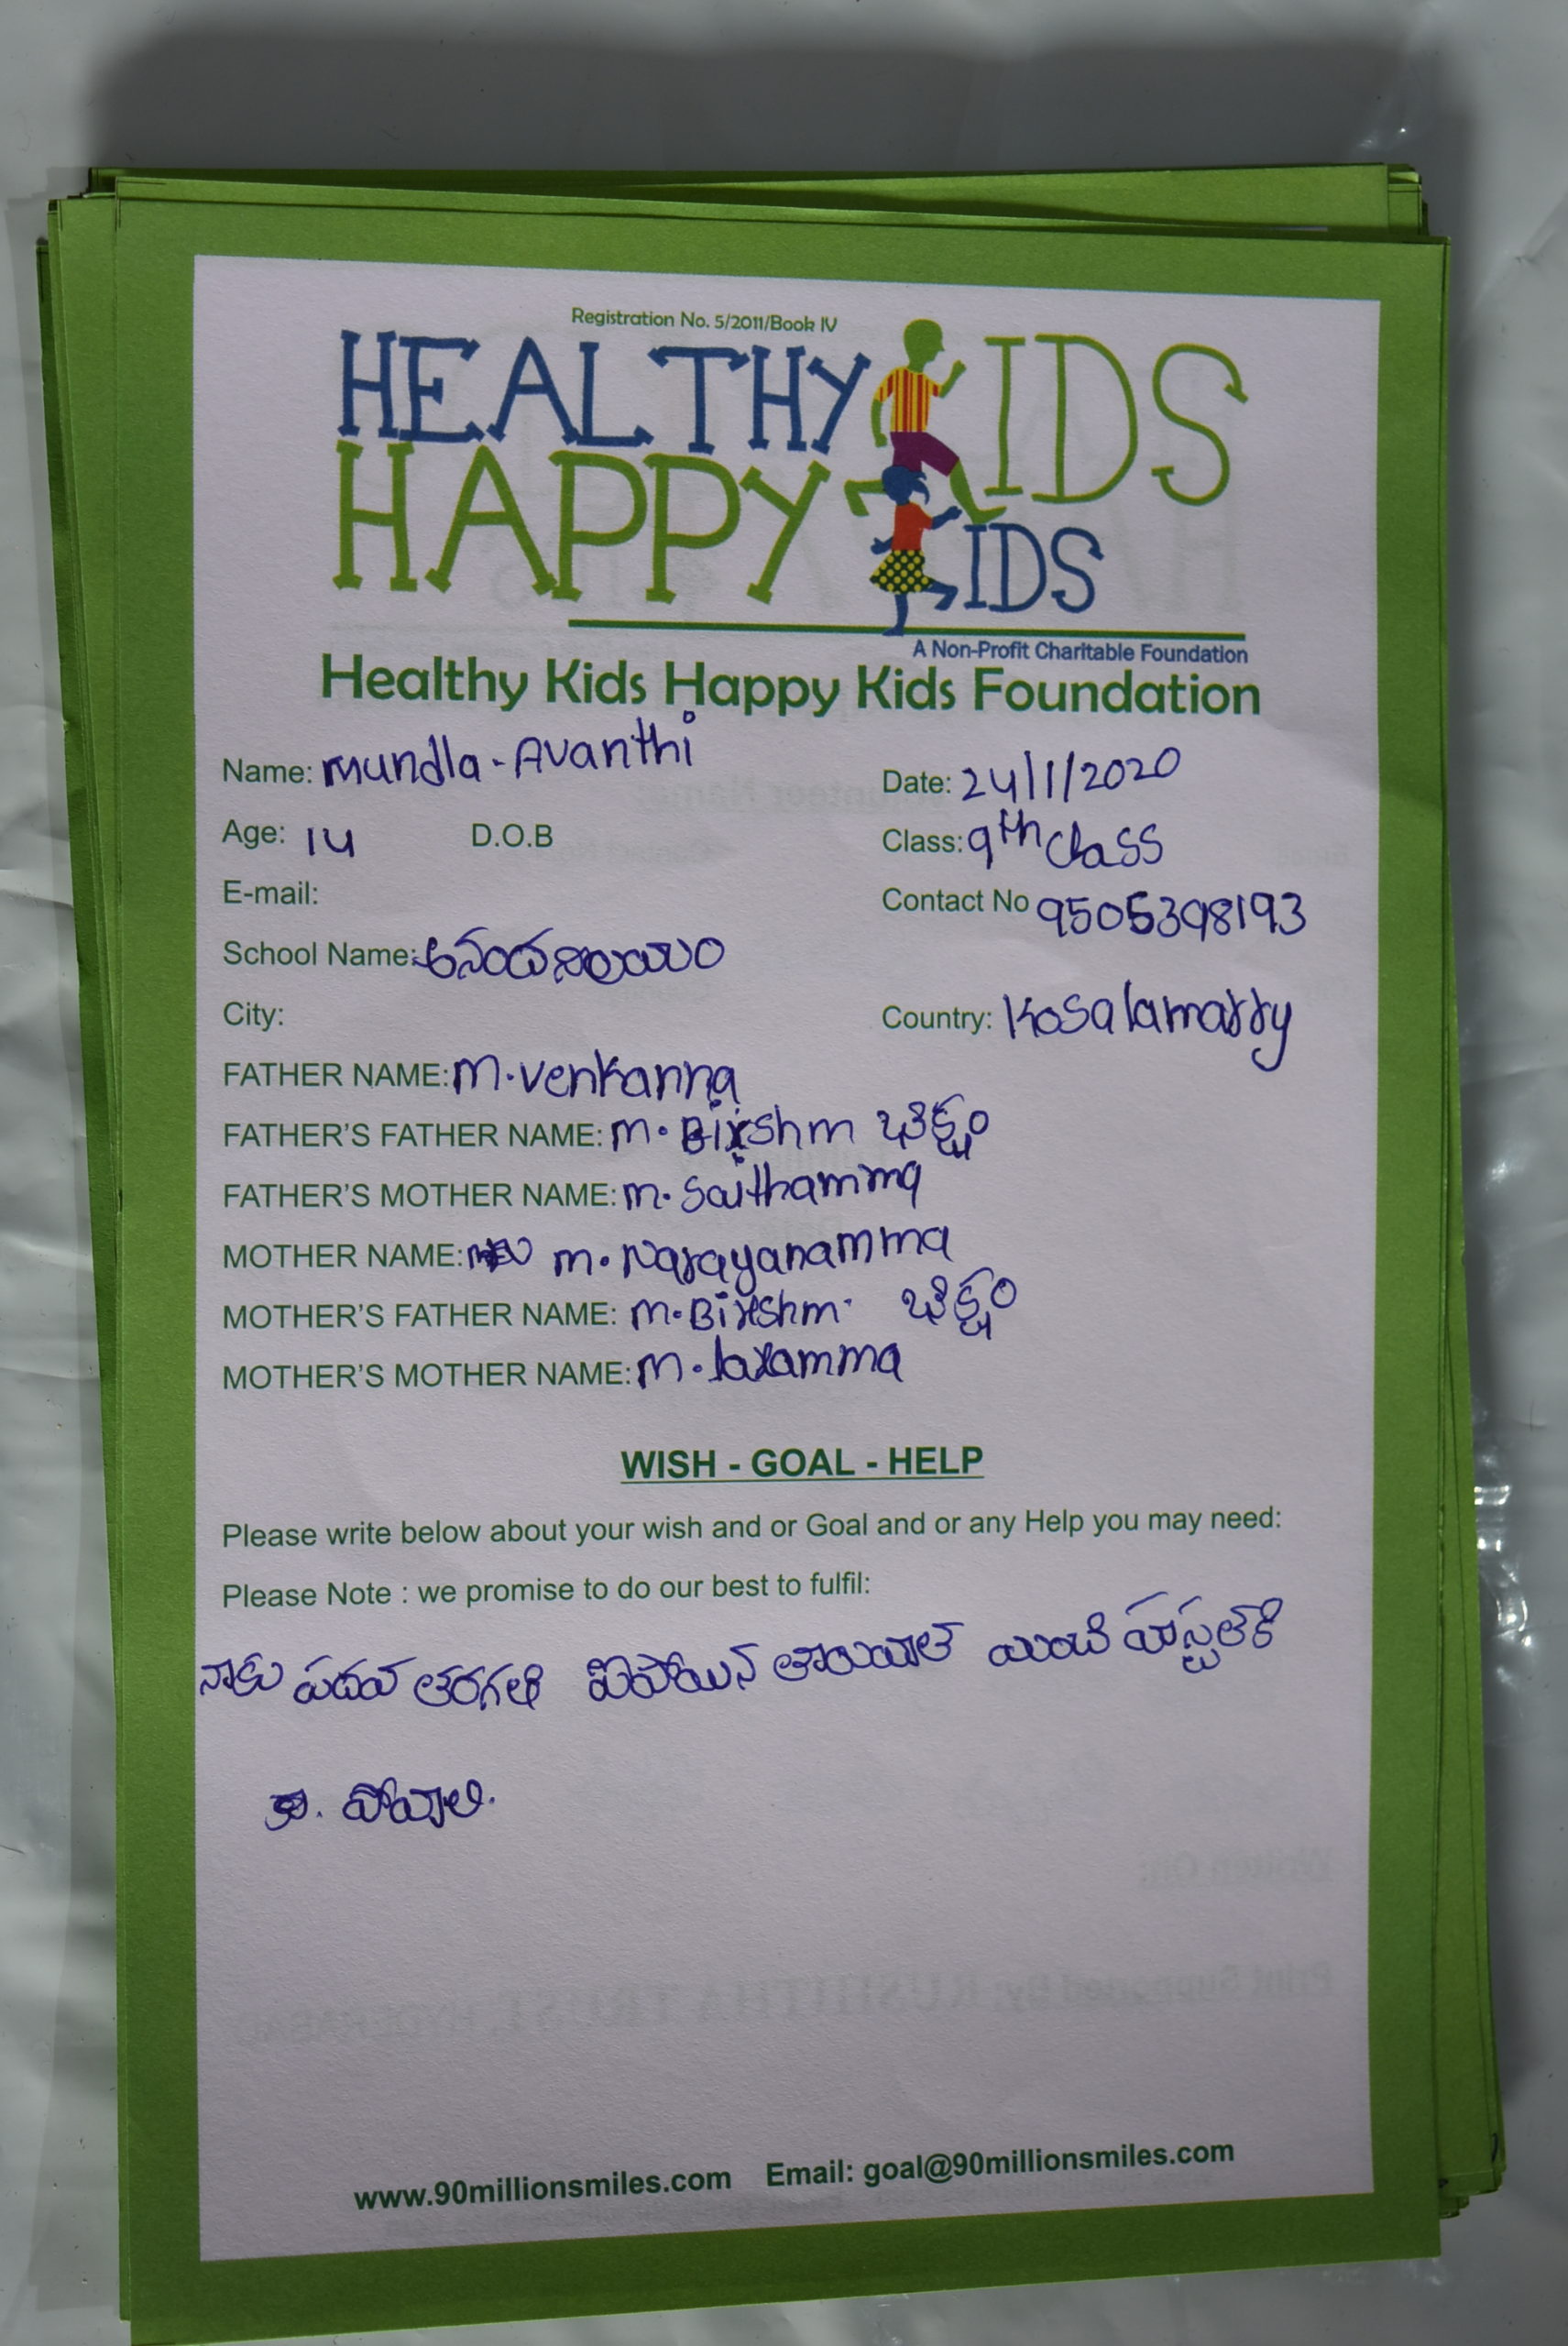 Registration No. 5/2011/Book IV
HEALTHY KIDS
HAPPY KIDS
A Non-Profit Charitable Foundation
Healthy Kids Happy Kids Foundation
Name: Mundla - Avanthi Date: 24/1/2020
Age: 14 D.O.B Class: 9th class
E-mail: Contact No 9505398193
School Name: ఆనంద నిలయం
City: Country: Kosalamarry
FATHER NAME: M. venkanna
FATHER'S FATHER NAME: M. Bixshm భిక్షం
FATHER'S MOTHER NAME: M. Saithamma
MOTHER NAME: M. Narayanamma
MOTHER'S FATHER NAME: M. Bixshm భిక్షం
MOTHER'S MOTHER NAME: M. laxamma
WISH - GOAL - HELP
Please write below about your wish and or Goal and or any Help you may need:
Please Note : we promise to do our best to fulfil:
నాకు పదవ తరగతి హాస్టల్‌కి
పోవాలి.
www.90millionsmiles.com Email: goal@90millionsmiles.com